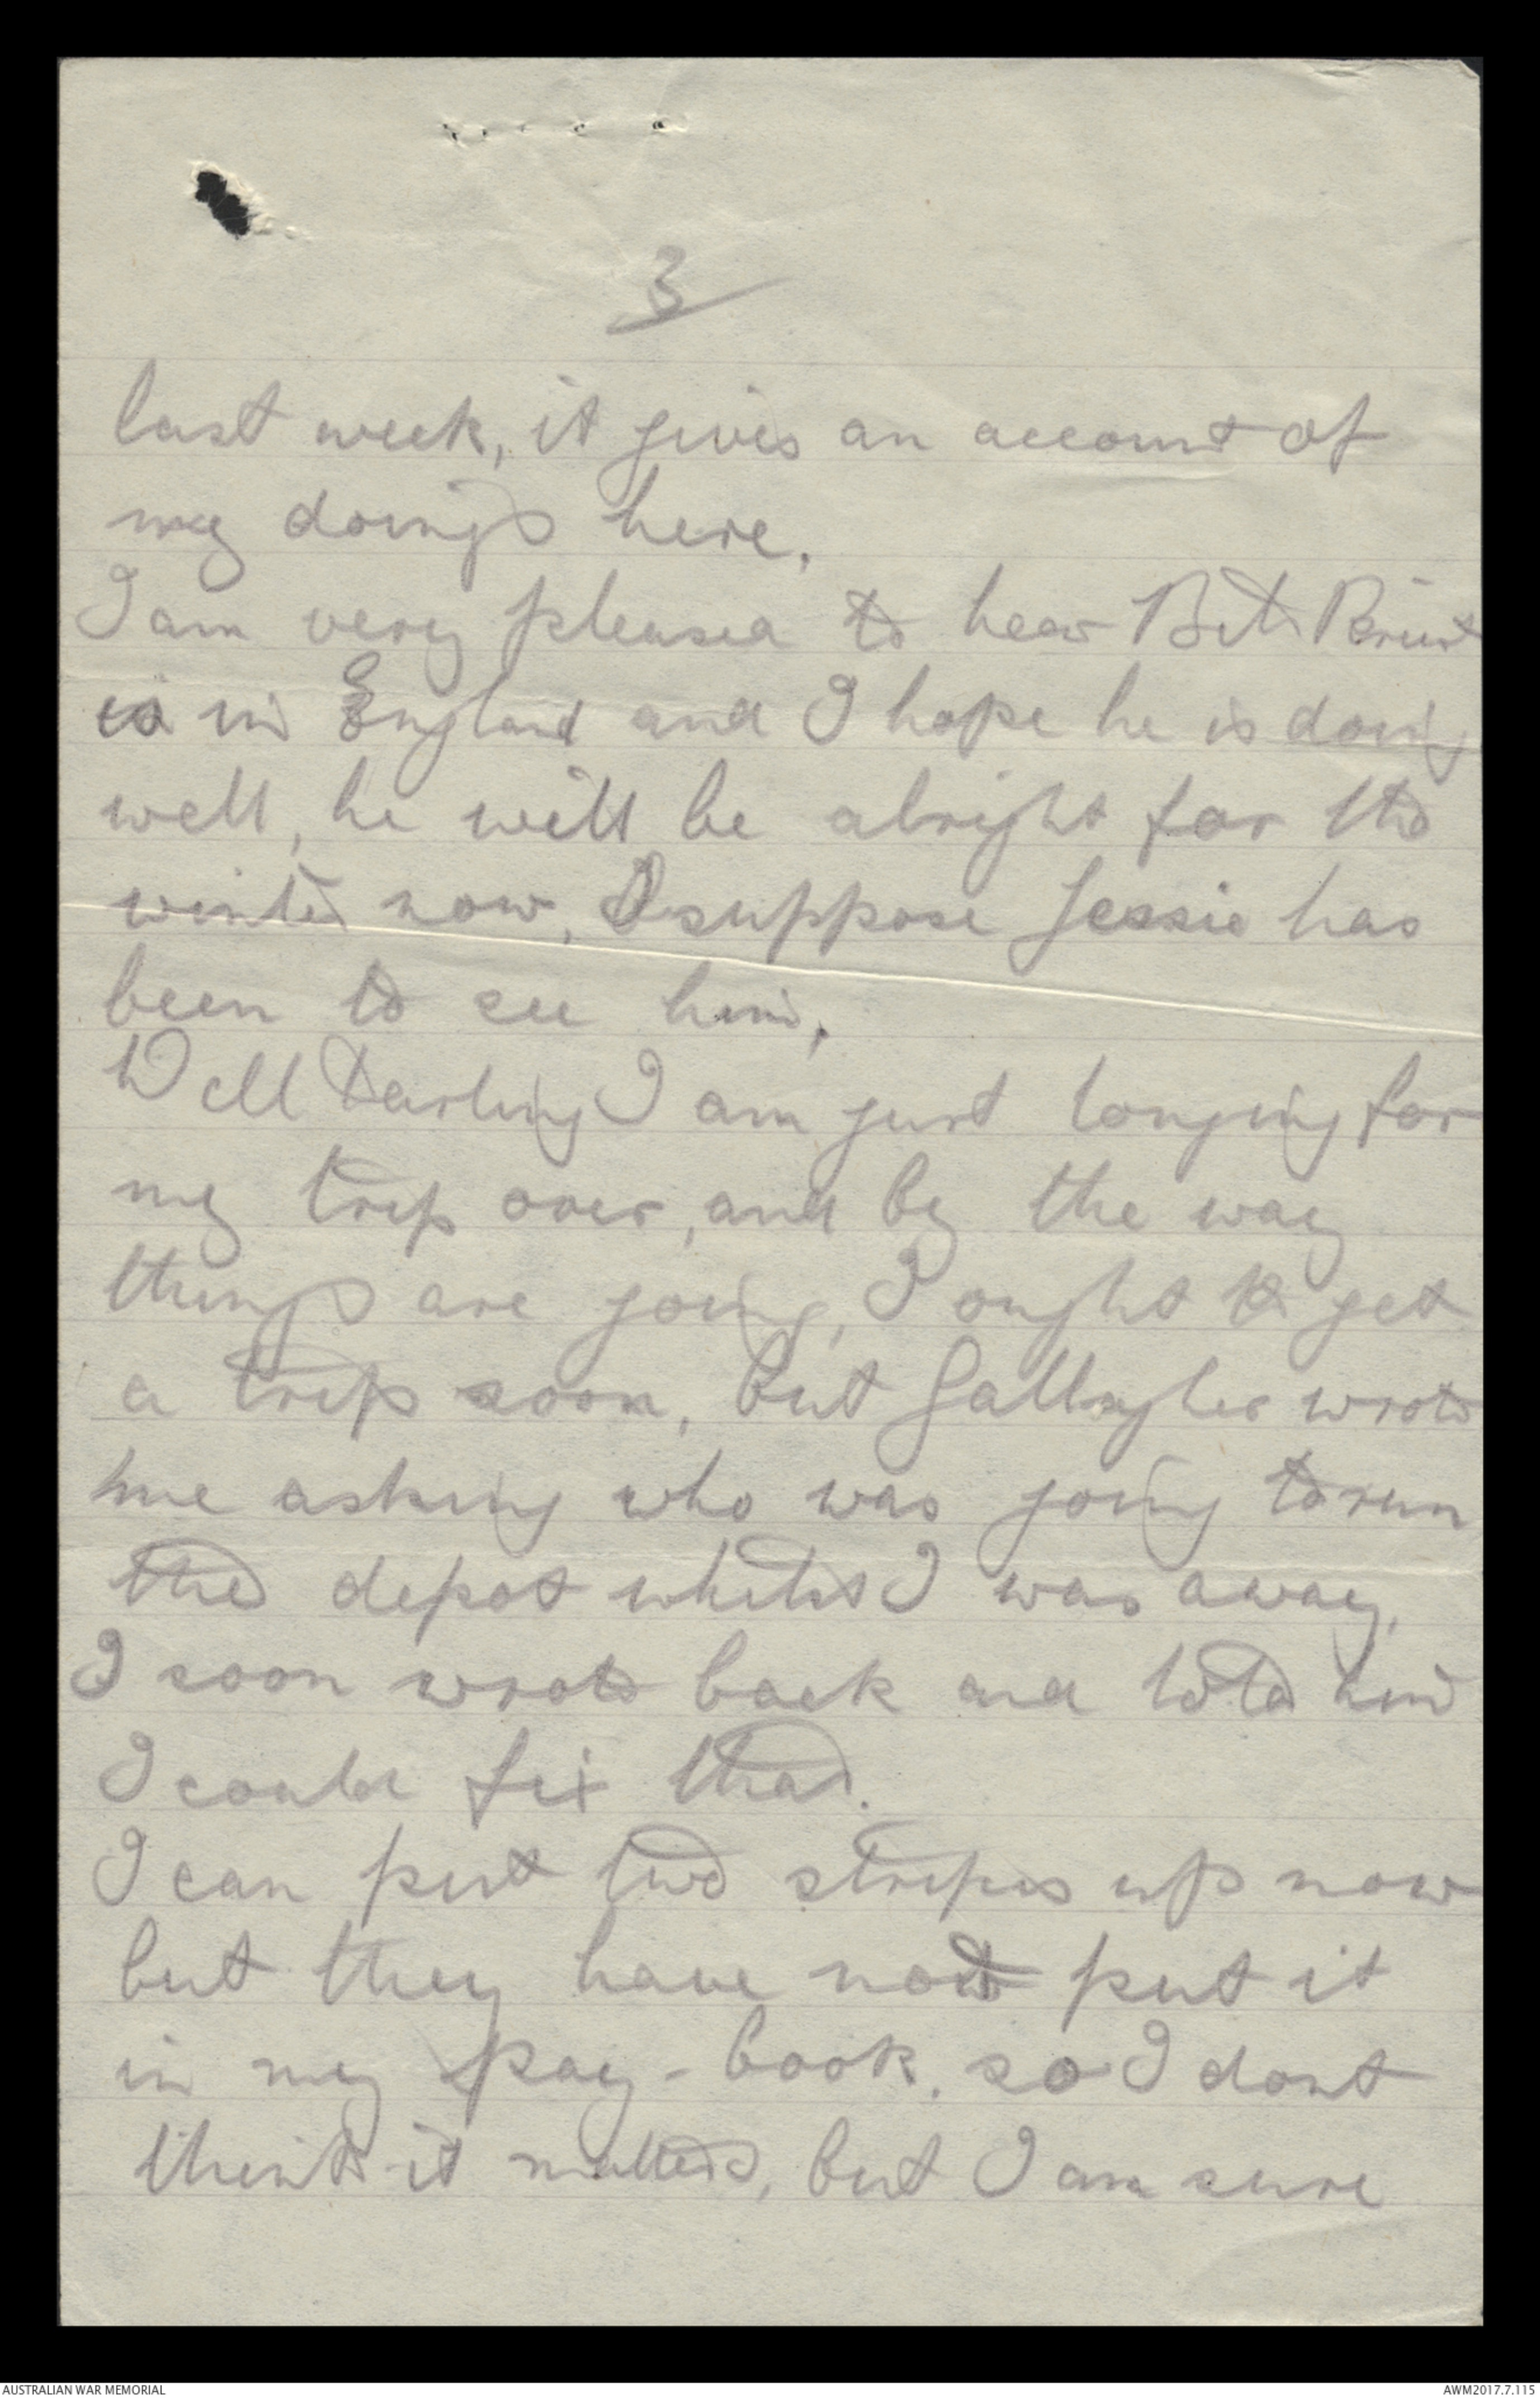 3
last week, it gives an account of
my doings here.
I am very pleased to hear
is in England and I hope he is doing
well, he will be alright for the
winter now, I suppose Jessie has
been to see him.
Well Darling I am just longing for
my trip over, and by the way
things are going, I ought to get
a trip soon, but Gallagher wrote
me asking who was going to run
the depot whilst I was away.
I soon wrote back and told him
I could fix that.
I can put two stripes up now
but they have not put it
in my pay-book. so I dont
think it matters, but I am sure
AUSTRALIAN WAR MEMORIAL
AWM2017.7.115